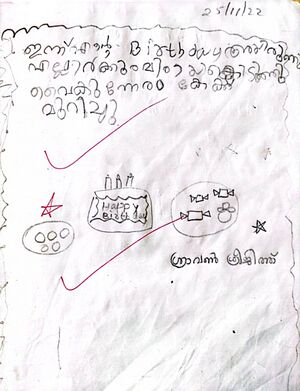 25/11/22
ഇന്ന് എന്റെ Birthday ആയിരുന്നു
എല്ലാർക്കും മിഠായി കൊടുത്തു
വൈകുന്നേരം കേക്ക്
മുറിച്ചു
Happy
Birthday
ശ്രാവൺ ശ്രീജിത്ത്